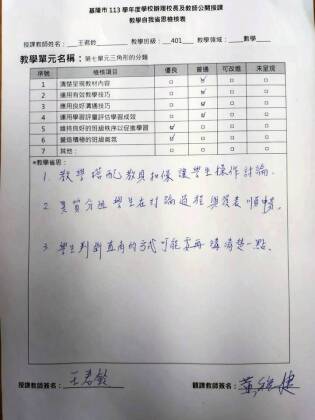 基隆市 113 學年度學校辦理校長及教師公開授課
教學自我省思檢核表
授課教師姓名：___王君鈴___ 教學班級：__401__ 教學領域：____數學____
教學單元名稱：第七單元三角形的分類
序號 檢核項目 優良 普通 可改進 未呈現
1 清楚呈現教材內容 □ ☑ □ □
2 運用有效教學技巧 □ ☑ □ □
3 應用良好溝通技巧 □ ☑ □ □
4 運用學習評量評估學習成效 □ ☑ □ □
5 維持良好的班級秩序以促進學習 ☑ □ □ □
6 營造積極的班級氣氛 □ ☑ □ □
7 其他： □ □ □ □
*教學省思：
1. 教學搭配教具扣條讓學生操作討論.
2. 異質分組學生在討論過程與發表順暢.
3 學生判斷直角的方式可能要再講清楚一點.
授課教師簽名：王君鈴 觀課教師簽名：